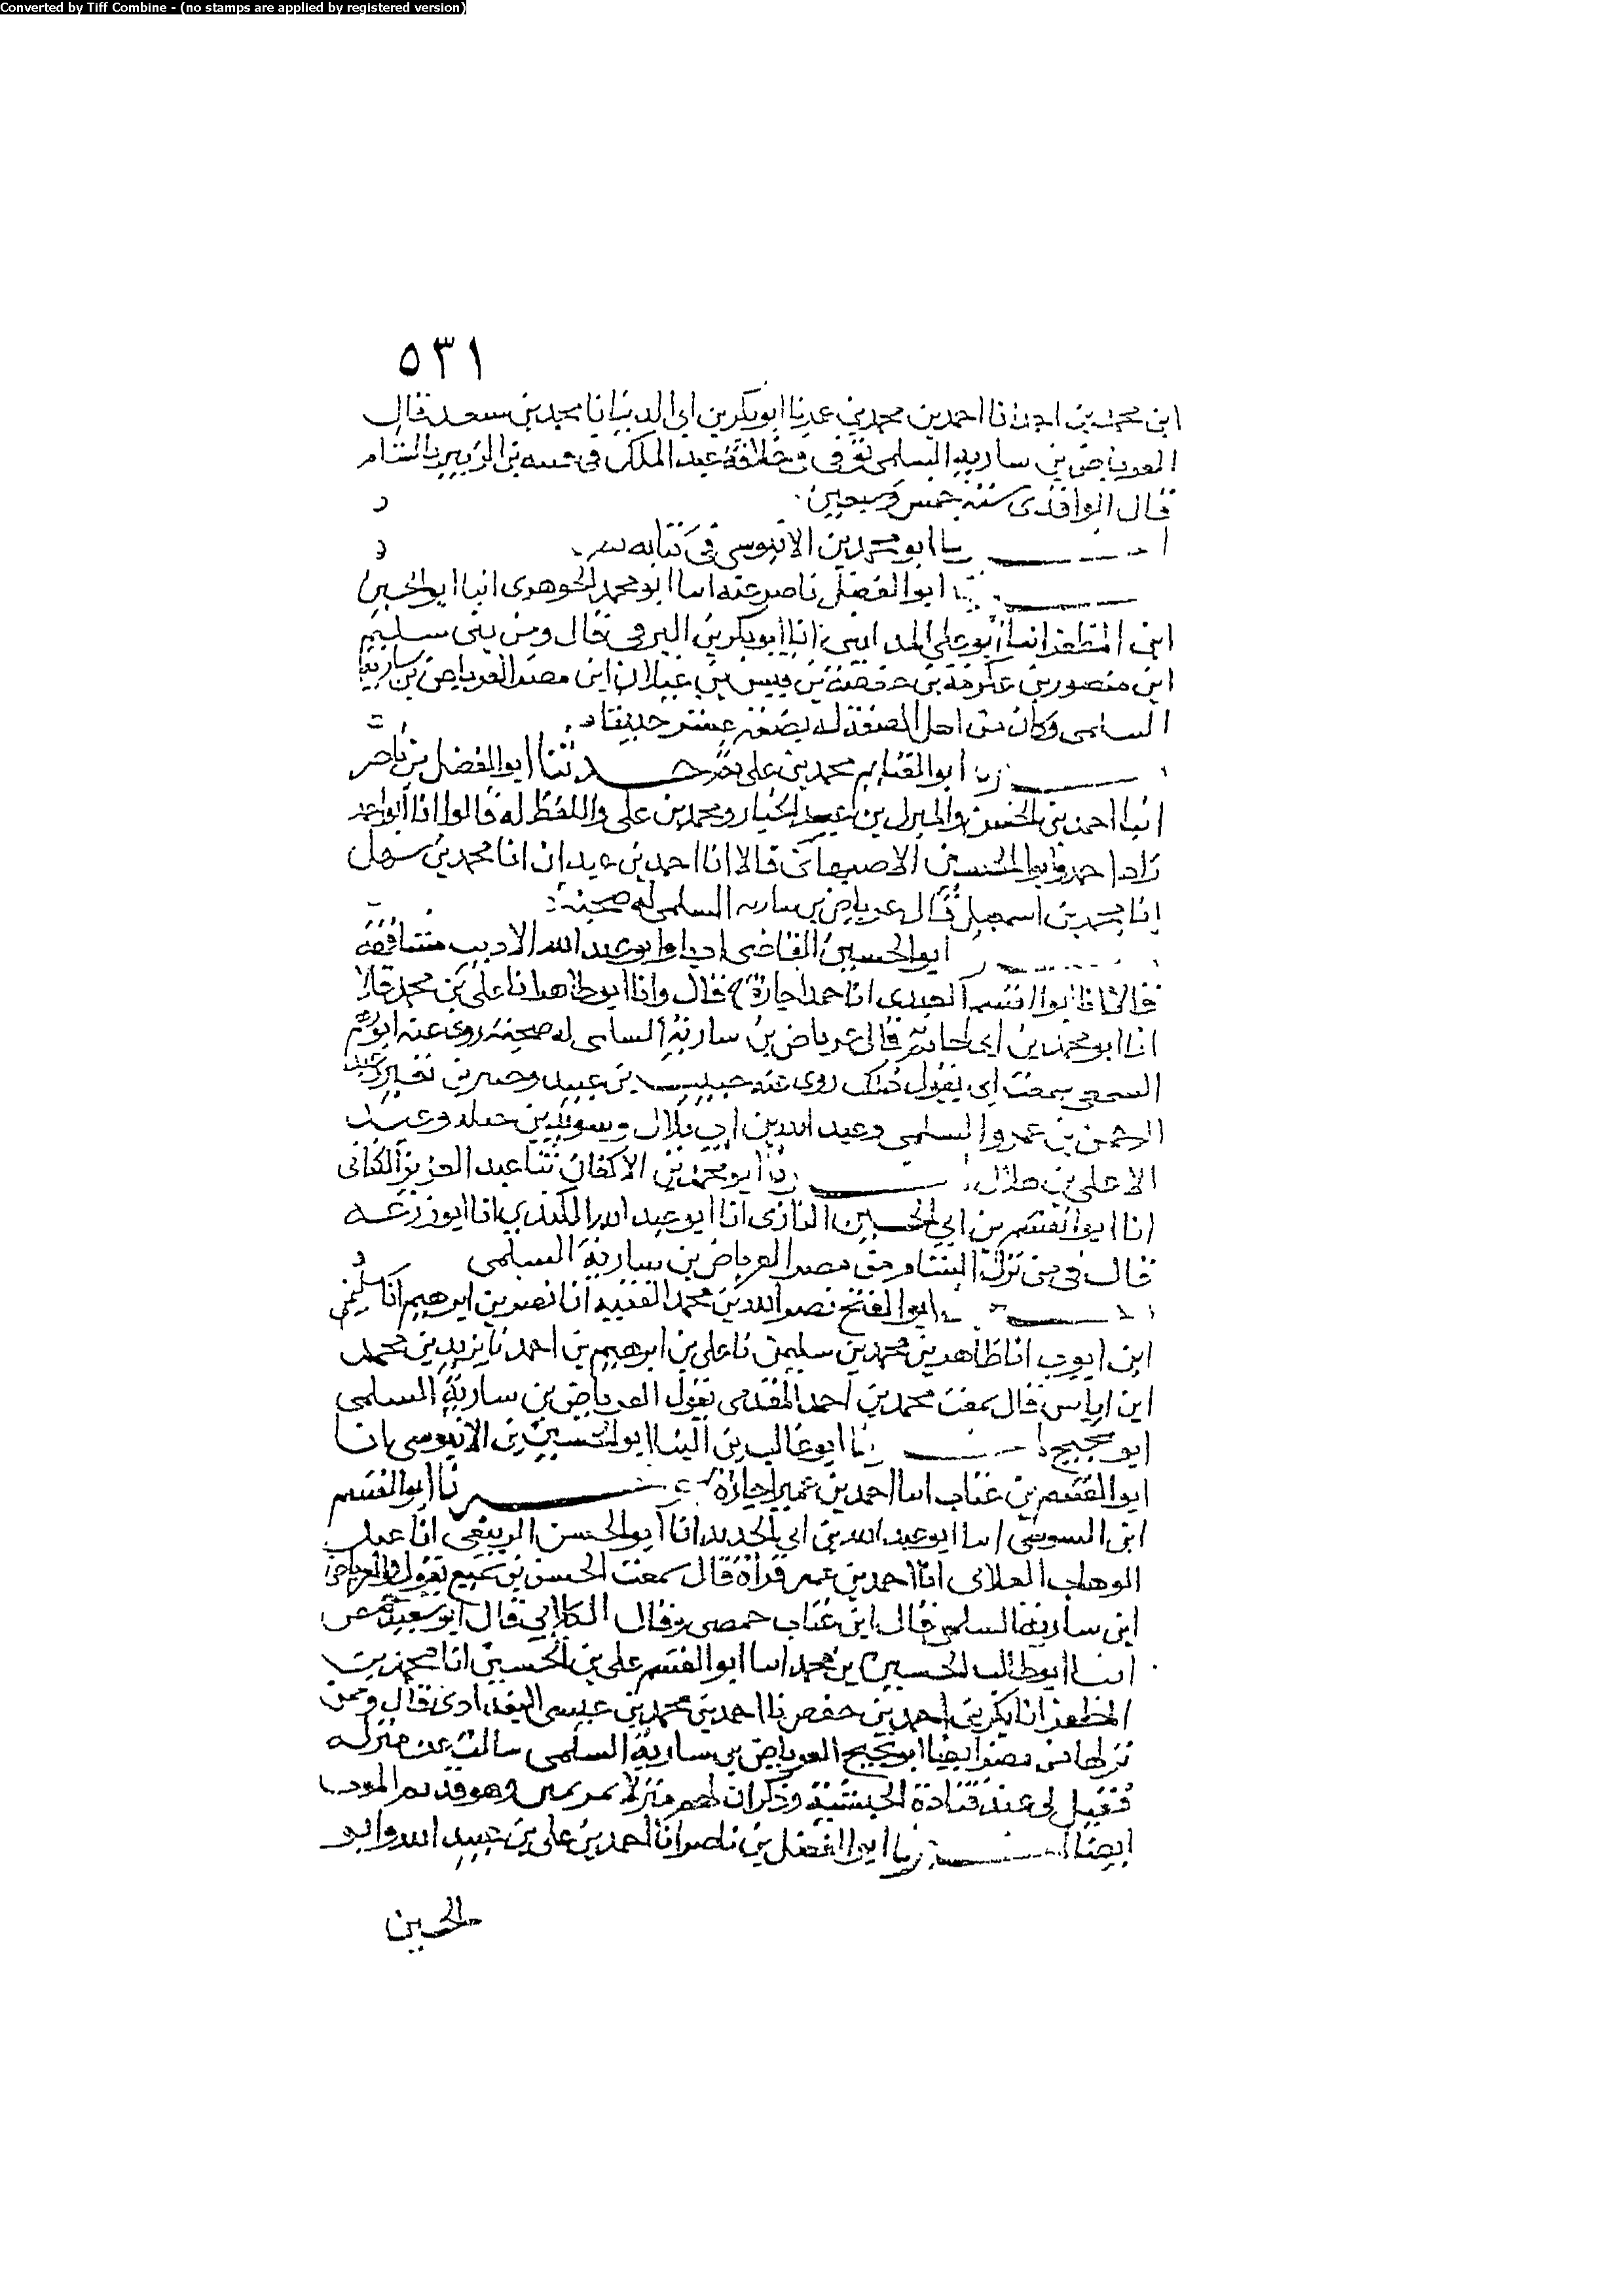 Converted by Tiff Combine - (no stamps are applied by registered version)
٥٣١
ابن محمد بن احمد انا احمد بن محمد بن عمر نا ابو بكر بن ابي الدنيا نا محمد بن سعد قال
العرباض بن سارية السلمي توفي في خلافة عبد الملك في فتنة بن الزبير بالشام
قال الواقدي سنة خمس وسبعين
ا نا ابو محمد بن الابنوسي في كتابه
ابو الفضل ناصر عنه انبا ابو محمد الجوهري انبا ابو الحسين
ابن المظفر انبا ابو علي المدايني انا ابو بكر بن البرقي قال ومن بني سليم
ابن منصور بن عكرمة بن خصفة بن قيس بن عيلان ابن مضر العرباض بن سارية
السلمي وكان من اهل الصفة له بضعة عشر حديثا
نا ابو الغنايم محمد بن علي حدثنا ابو الفضل بن ناصر
انبا احمد بن الحسن والمبرك بن عبد الجبار ومحمد بن علي واللفظ له قالوا انا ابو احمد
زاد احمد وابو الحسين الاصبهاني قالا انا احمد بن عبدان انا محمد بن سهل
انا محمد بن اسمعيل قال عرباض بن سارية السلمي له صحبة
ابو الحسين القاضي اذنا وابو عبد الله الاديب مشافهة
قالا انا ابو القسم العبدي انا حمد اجازة ح قال وانا ابو طاهر انا علي بن محمد قالا
انا ابو محمد بن ابي حاتم قال عرباض بن سارية السلمي له صحبة روى عنه ابو رهم
السمعي سمعت ابي يقول ذلك روى عنه حبيب بن عبيد وجبير بن نفير وعبد
الرحمن بن عمرو السلمي وعبد الله بن ابي بلال وسويد بن جبلة وعبد
الاعلى بن هلال نا ابو محمد بن الاكفاني ثنا عبد العزيز الكتاني
انا ابو القسم بن ابي الحسين الرازي انا ابو عبد الله الكندي انا ابو زرعة
قال في من نزل الشام من مضر العرباض بن سارية السلمي
ابو الفتح نصر الله بن محمد الفقيه انا نصر بن ابرهيم انا سليم
ابن ايوب انا طاهر بن محمد بن سليمن نا علي بن ابرهيم بن احمد نا يزيد بن محمد
ابن اياس قال سمعت محمد بن احمد المقدمي يقول العرباض بن سارية السلمي
ابو نجيح نا ابو غالب بن البنا ابو الحسين بن الابنوسي انا
ابو القسم بن عتاب انبا احمد بن عمير اجازة ح نا ابو القسم
ابن السوسي انبا ابو عبد الله بن ابي الحديد انا ابو الحسن الربعي انا عبد
الوهاب الكلابي انا احمد بن عمير قراة قال سمعت الحسن بن سميع يقول والعرباض
ابن سارية السلمي قال ابن عتاب حمصي وقال الكلابي قال ابو سعيد حمص
انبا ابو طالب الحسين بن محمد انبا ابو القسم علي بن الحسين انا محمد بن
المظفر انا بكر بن احمد بن حفص نا احمد بن محمد بن عيسى البغدادي قال وممن
نزلها من مضر ايضا ابو نجيح العرباض بن سارية السلمي سالت عن منزله
فقيل لي عند قناة الحبشية وذكر ان لهم منزلا وهو قديم الموت
ايضا نا ابو الفضل بن ناصر انا احمد بن علي بن عبيد الله وابو
الحسين